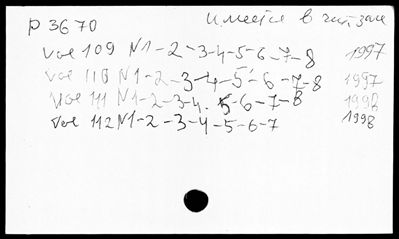 р 3670 Имеется в чит, зале
Vol 109 N1-2-3-4-5-6-7-8 1997
Vol 110 N1-2-3-4-5-6-7-8 1997
Vol 111 N1-2-3-4. 5-6-7-8 1998
Vol 112 N1-2-3-4-5-6-7 1998